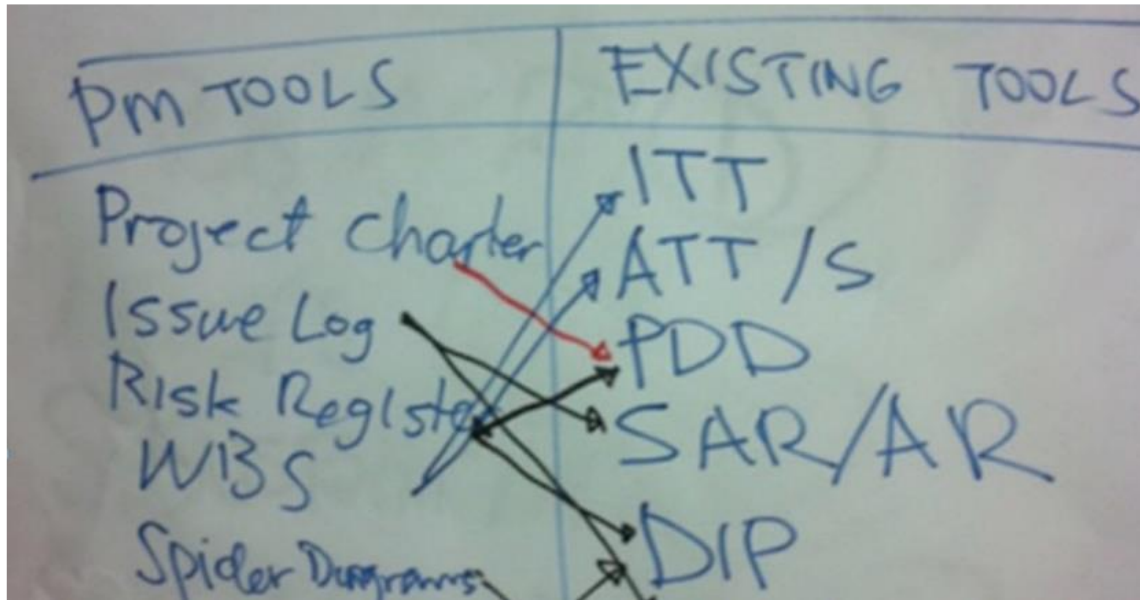 PM TOOLS
EXISTING TOOLS
Project Charter
ITT
Issue Log
ATT/S
Risk Register
PDD
WBS
SAR/AR
Spider Diagrams
DIP